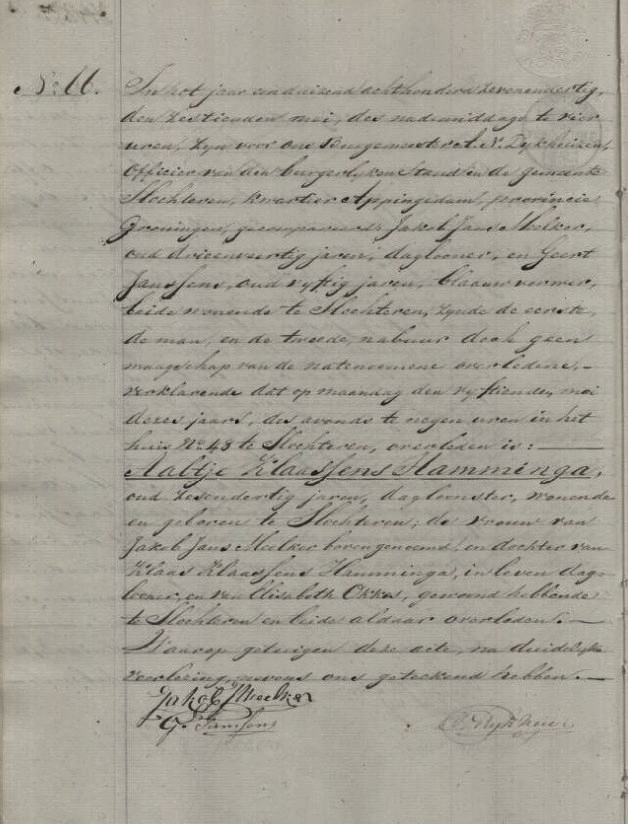 No: 66.
In het jaar een duizend acht honderd zevenendertig,
den zestienden mei, des nademiddags te vier
uren, zyn voor ons Burgemeester A. N. Dykhuizen,
Officier van den burgerlyken Stand in de gemeente
Slochteren, kwartier Appingedam, provincie
Groningen, gecompareerd: Jakob Jans Meelker,
oud drieenveertig jaren, daglooner, en Geert
Janssens, oud vyftig jaren, blaauwverwer,
beide wonende te Slochteren, zynde de eerste,
de man, en de tweede, nabuur doch geen
maagschap van de natenoemene overledene, –
verklarende dat op maandag den vyftienden mei
dezes jaars, des avonds te negen uren in het
huis No 48 te Slochteren, overleden is: –
Aaltje Klaassens Hamminga,
oud zesendertig jaren, dagloonster, wonende
en geboren te Slochteren; de vrouw van
Jakob Jans Meelker bovengenoemd, en dochter van
Klaas Klaassens Hamminga, in leven dag-
looner, en van Elisabeth Okkes, gewoond hebbende
te Slochteren en beide aldaar overleden. –
Waarop getuigen deze acte, na duidelyke
voorlezing, nevens ons geteekend hebben. –
Jakob J Meelker
G. Janssens